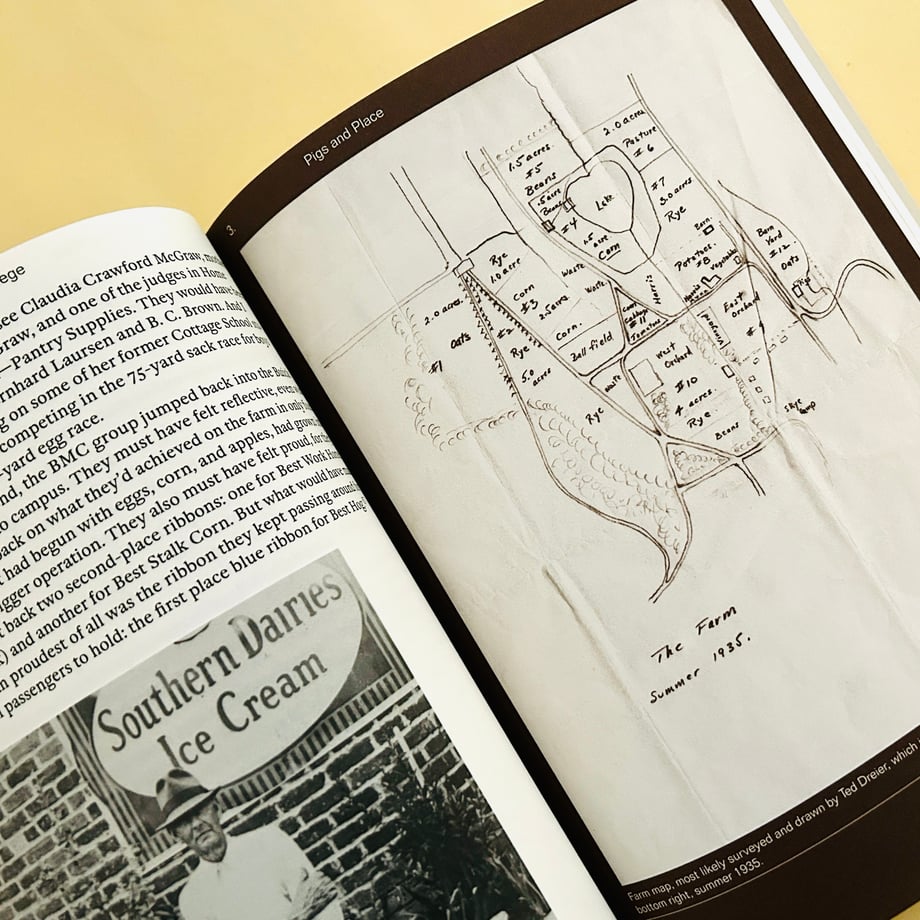 ege
see Claudia Crawford McGraw,
raw, and one of the judges in Home
—Pantry Supplies. They would have
rnhard Laursen and B. C. Brown. And
g on some of her former Cottage School
competing in the 75-yard sack race for boys
-yard egg race.
nd, the BMC group jumped back into the
o campus. They must have felt reflective, even
back on what they'd achieved on the farm in only
t had begun with eggs, corn, and apples, had grown
igger operation. They also must have felt proud, for
t back two second-place ribbons: one for Best Work
) and another for Best Stalk Corn. But what would have
n proudest of all was the ribbon they kept passing around
l passengers to hold: the first place blue ribbon for Best Hog
Southern Dairies
Ice Cream
Pigs and Place
3.
2.0 acres
Pasture
#6
1.5 acres
#5
Beans
.5 acre
Beans
#4
Lake
.5 acre
Corn
#7
3.0 acres
Rye
Barn
Potatoes
#8
Vegetables
Barn
Yard
#12
Oats
Rye
1.0 acre
Waste
Waste
Corn
#3
2.5 acres
Corn
Ball field
2.0 acres
Oats
#1
#2
Rye
5.0
acres
Rye
Waste
Cabbage
#11
Tomatoes
West
Orchard
#10
4 acres
Rye
Beans
East
Orchard
#9
The Farm
Summer 1935.
Farm map, most likely surveyed and drawn by Ted Dreier, which
bottom right, summer 1935.